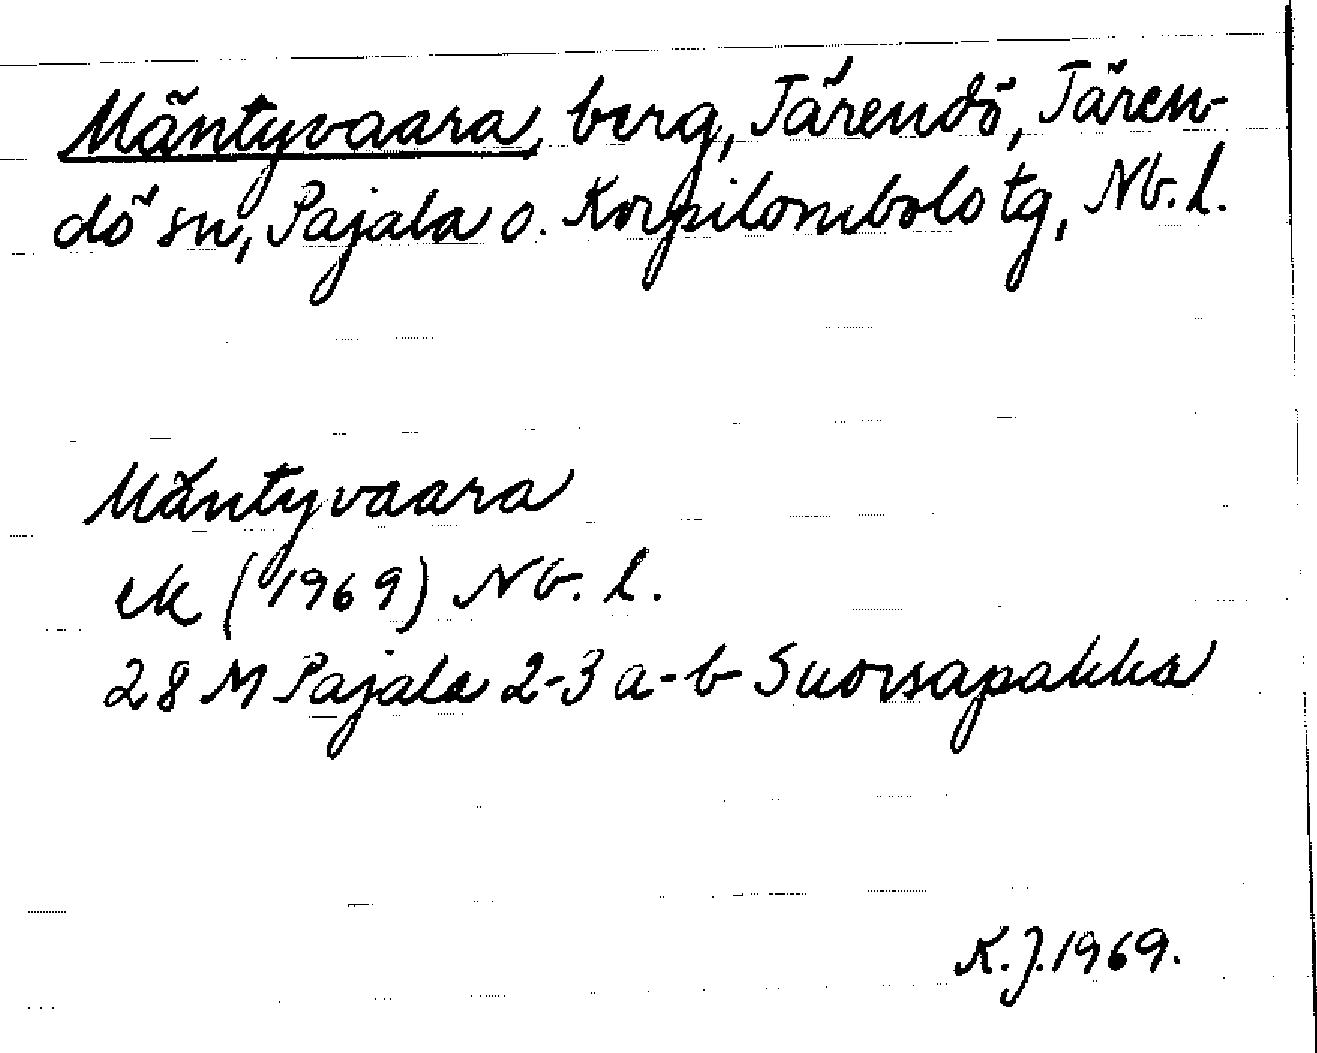 Mäntyvaara, berg, Tärendö, Tären-
dö sn, Pajala o. Korpilombolo tg, Nb. l.
Mäntyvaara
ek (1969) Nb. l.
28 M Pajala 2-3 a-b Suorsapakka
K.J. 1969.